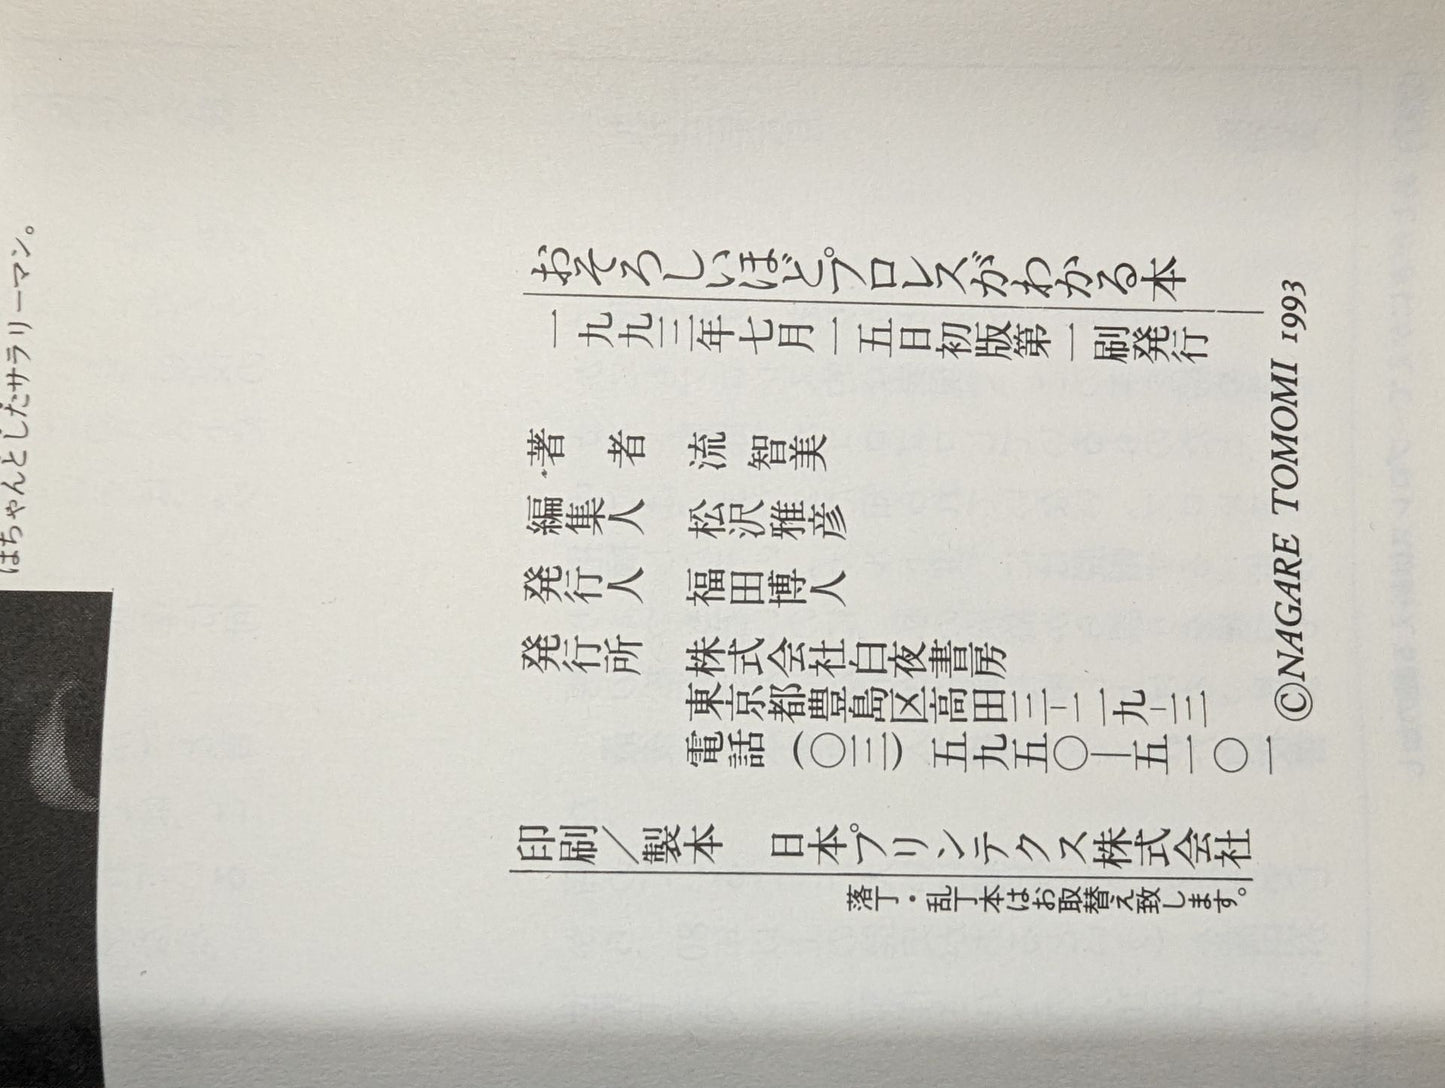 おそろしいほどプロレスがわかる本
一九九三年七月一五日初版第一刷発行
著者 流智美
編集人 松沢雅彦
発行人 福田博人
発行所 株式会社白夜書房
東京都豊島区高田三−二一九−三
電話(〇三)五九五〇—五一〇一
印刷/製本 日本プリンテクス株式会社
落丁・乱丁本はお取替え致します。
©NAGARE TOMOMI 1993
はちゃんとしたサラリーマン。